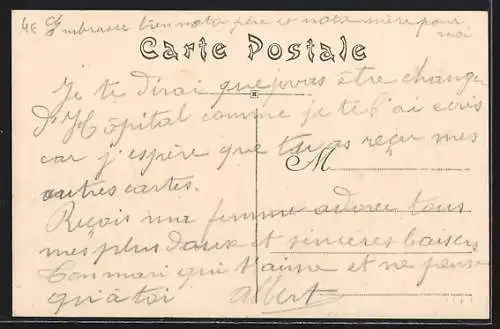 4E Embrasse bien notre père et notre mère pour
moi
Carte Postale
Je te dirai que je vas être changer
d'Hôpital comme je te l'ai écris
car j'espère que tu as reçu mes
M
autres cartes.
Reçois ma femme adorée tous
mes plus doux et sincères baisers
Ton mari qui t'aime et ne pense
qu'à toi Albert